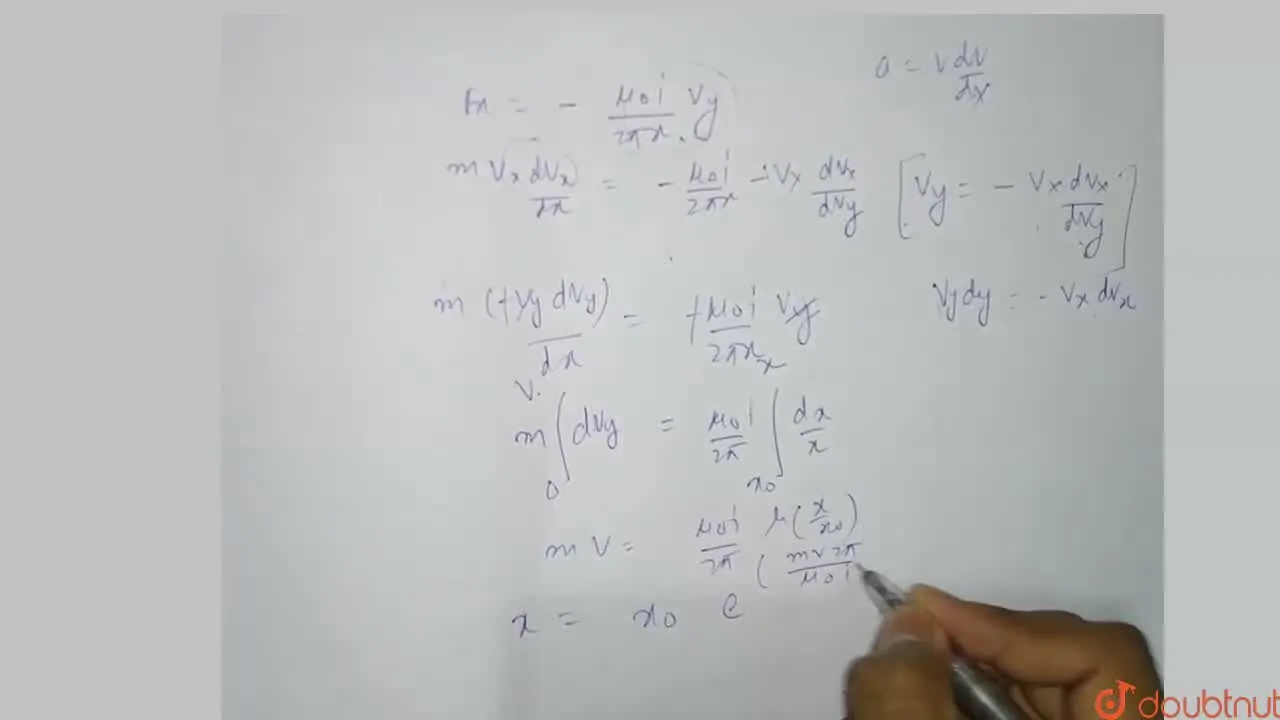 a = v dv/dx
Fx = - μ0i/2πx Vy
m Vx dVx/dx = - μ0i/2πx - Vx dVx/dVy [ Vy = - Vx dVx/dVy ]
m (+Vy dVy)/dx = + μ0i/2πx Vy Vydy = - Vx dVx
m ∫ dVy = μ0i/2π ∫ dx/x
V 0 x x0
m V = μ0i/2π ln(x/x0)
x = x0 e (mv2π/μ0i
doubtnut